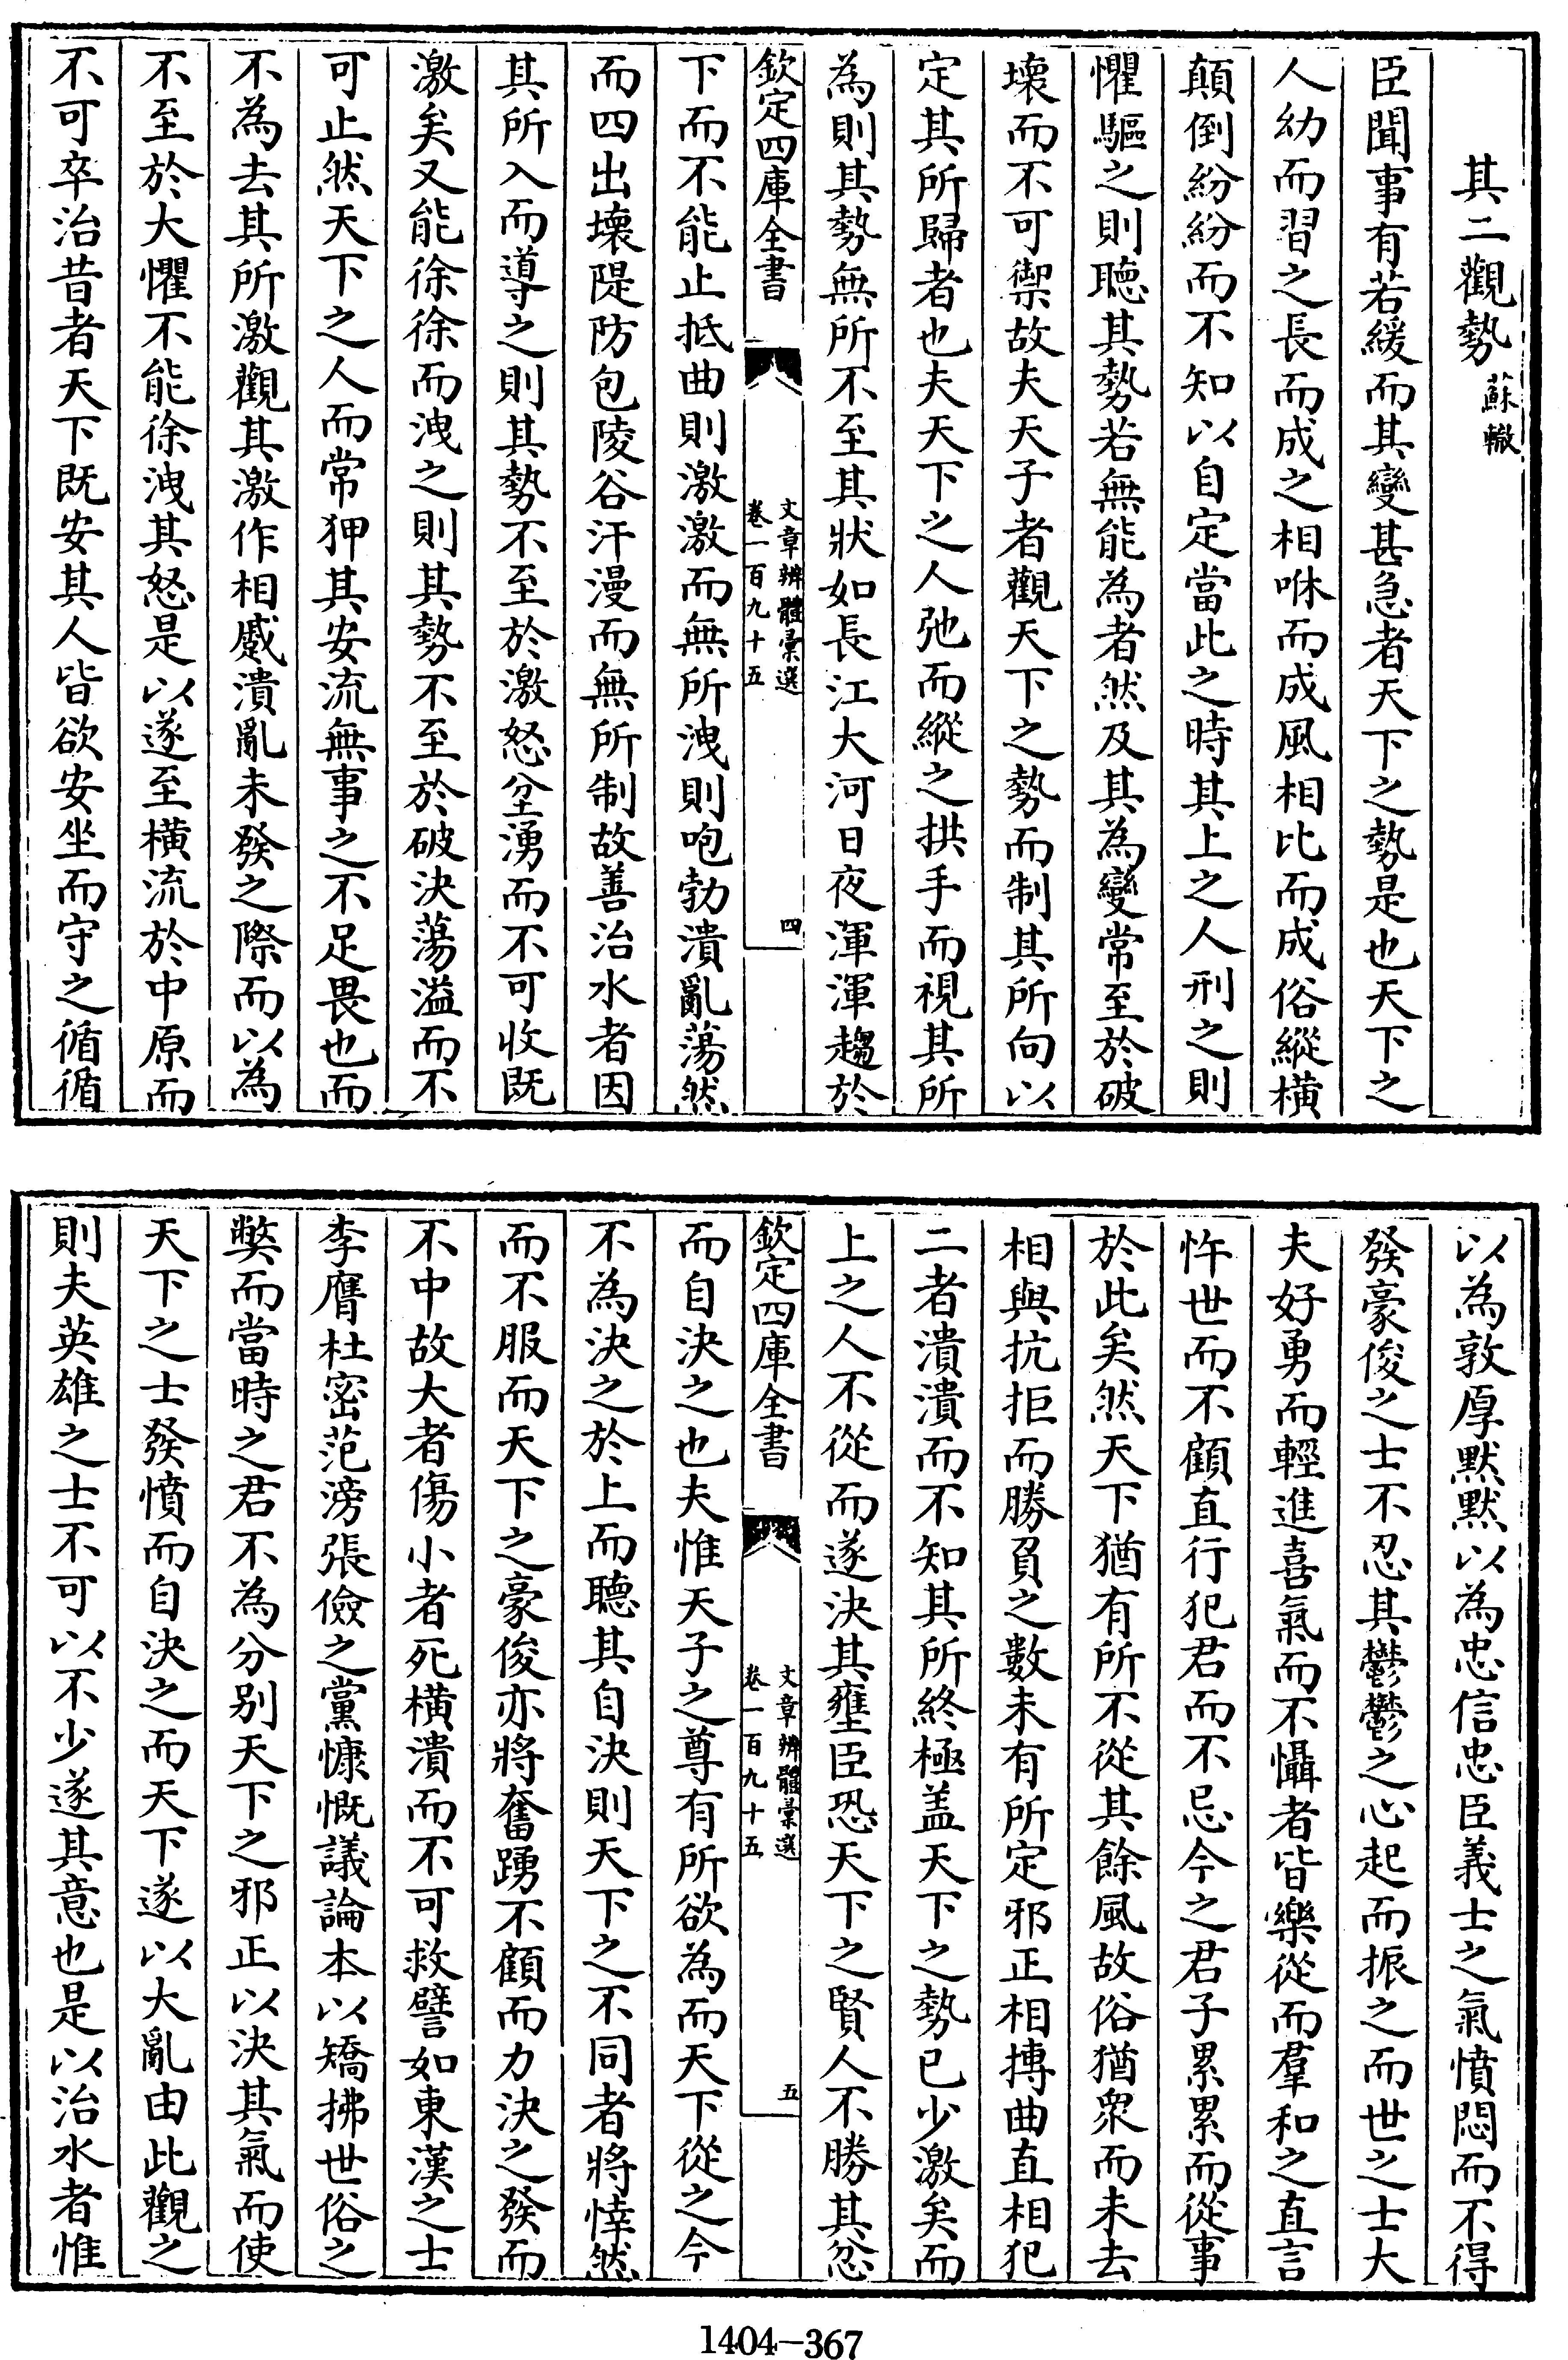 其二觀勢蘇轍
臣聞事有若緩而其變甚急者天下之勢是也天下之
人幼而習之長而成之相咻而成風相比而成俗縱橫
顛倒紛紛而不知以自定當此之時其上之人刑之則
懼驅之則聽其勢若無能為者然及其為變常至於破
壞而不可禦故夫天子者觀天下之勢而制其所向以
定其所歸者也夫天下之人弛而縱之拱手而視其所
為則其勢無所不至其狀如長江大河日夜渾渾趨於
欽定四庫全書
文章辨體彙選
卷一百九十五
四
下而不能止抵曲則激激而無所洩則咆勃潰亂蕩然
而四出壞隄防包陵谷汗漫而無所制故善治水者因
其所入而導之則其勢不至於激怒坌湧而不可收既
激矣又能徐徐而洩之則其勢不至於破決蕩溢而不
可止然天下之人而常狎其安流無事之不足畏也而
不為去其所激觀其激作相蹙潰亂未發之際而以為
不至於大懼不能徐洩其怒是以遂至橫流於中原而
不可卒治昔者天下既安其人皆欲安坐而守之循循
以為敦厚默默以為忠信忠臣義士之氣憤悶而不得
發豪俊之士不忍其鬱鬱之心起而振之而世之士大
夫好勇而輕進喜氣而不懾者皆樂從而羣和之直言
忤世而不顧直行犯君而不忌今之君子累累而從事
於此矣然天下猶有所不從其餘風故俗猶衆而未去
相與抗拒而勝負之數未有所定邪正相摶曲直相犯
二者潰潰而不知其所終極盖天下之勢已少激矣而
上之人不從而遂決其壅臣恐天下之賢人不勝其忿
欽定四庫全書
文章辨體彙選
卷一百九十五
五
而自決之也夫惟天子之尊有所欲為而天下從之今
不為決之於上而聽其自決則天下之不同者將悻然
而不服而天下之豪俊亦將奮踴不顧而力決之發而
不中故大者傷小者死橫潰而不可救譬如東漢之士
李膺杜密范滂張儉之黨慷慨議論本以矯拂世俗之
弊而當時之君不為分別天下之邪正以決其氣而使
天下之士發憤而自決之而天下遂以大亂由此觀之
則夫英雄之士不可以不少遂其意也是以治水者惟
1404—367